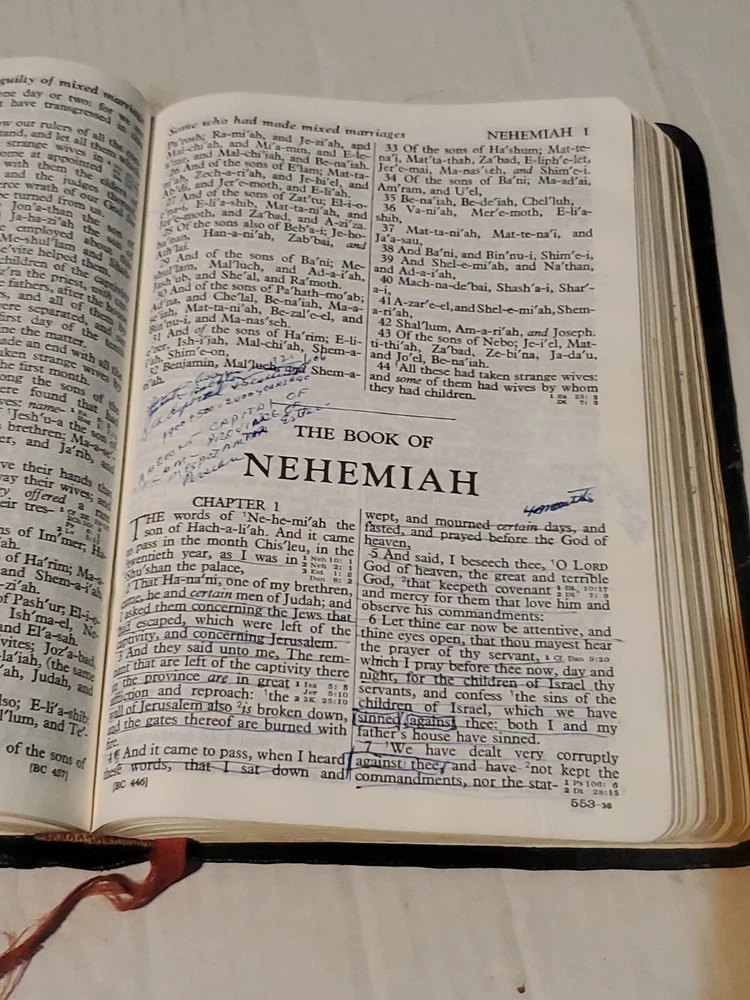 guilty of mixed marriages
one day or two: for we
have transgressed in
our rulers of all the
and let all them
strange wives in
come at appointed
with them the elders
and the judges
wrath of our God
be turned from us.
Jon'a-than the son of
Ja-ha-zi'ah the son
employed about
Me-shul'lam and
Le'vite helped them.
children of the captivity
the priest, with
fathers, after the
and all of them by
were separated, and
first day of the tenth
the matter.
made an end with all the
taken strange wives by
the first month.
among the sons of the
were found that had
wives: name-
Jesh'u-a the son
brethren; Ma-a-se'-
er, and Ja'rib, and
gave their hands that
away their wives; and
they offered a ram
their tres-
sons of Im'mer; Ha-
of Ha'rim; Ma-a-
and Shem-a-i'-
-zi'ah.
of Pash'ur; El-i-o-
Ish'ma-el, Ne-
and El'a-sah.
vites; Joz'a-bad,
-la'iah, (the same
'ah, Judah, and
also; E-li'a-shib:
l'lum, and Te'-
of the sons of
[BC 457]
Some who had made mixed marriages
NEHEMIAH 1
Pa'rosh; Ra-mi'ah, and Je-zi'ah, and
Mal-chi'ah, and Mi'a-min, and E-le-
a'zar, and Mal-chi'jah, and Be-na'iah.
26 And of the sons of E'lam; Mat-ta-
ni'ah, Zech-a-ri'ah, and Je-hi'el, and
Ab'di, and Jer'e-moth, and E-li'ah.
27 And of the sons of Zat'tu; El-i-o-
e'na-i, E-li'a-shib, Mat-ta-ni'ah, and
Jer'e-moth, and Za'bad, and A-zi'za.
28 Of the sons also of Beb'a-i; Je-ho-
ha'nan, Han-a-ni'ah, Zab'bai, and
Ath'lai.
29 And of the sons of Ba'ni; Me-
shul'lam, Mal'luch, and Ad-a-i'ah,
Jash'ub, and She'al, and Ra'moth.
30 And of the sons of Pa'hath-mo'ab;
Ad'na, and Che'lal, Be-na'iah, Ma-a-
se'iah, Mat-ta-ni'ah, Be-zal'e-el, and
Bin'nu-i, and Ma-nas'seh.
31 And of the sons of Ha'rim; E-li-
e'zer, Ish-i'jah, Mal-chi'ah, Shem-a-
i'ah, Shim'e-on,
32 Benjamin, Mal'luch, and Shem-a-
ri'ah.
33 Of the sons of Ha'shum; Mat-te-
na'i, Mat'ta-thah, Za'bad, E-liph'e-let,
Jer'e-mai, Ma-nas'seh, and Shim'e-i.
34 Of the sons of Ba'ni; Ma-ad'ai,
Am'ram, and U'el,
35 Be-na'iah, Be-de'iah, Chel'luh,
36 Va-ni'ah, Mer'e-moth, E-li'a-
shib,
37 Mat-ta-ni'ah, Mat-te-na'i, and
Ja'a-sau,
38 And Ba'ni, and Bin'nu-i, Shim'e-i,
39 And Shel-e-mi'ah, and Na'than,
and Ad-a-i'ah,
40 Mach-na-de'bai, Shash'a-i, Shar'-
a-i,
41 A-zar'e-el, and Shel-e-mi'ah, Shem-
a-ri'ah,
42 Shal'lum, Am-a-ri'ah, and Joseph.
43 Of the sons of Nebo; Je-i'el, Mat-
ti-thi'ah, Za'bad, Ze-bi'na, Ja-da'u,
and Jo'el, Be-na'iah.
44 ¹All these had taken strange wives:
and some of them had wives by whom
they had children.
1 Ex 23: 2
Dt 7: 3
CAPITAL OF
PROVINCE OF
THE BOOK OF
NEHEMIAH
4 months
CHAPTER 1
THE words of ¹Ne-he-mi'ah the
son of Hach-a-li'ah. And it came
to pass in the month Chis'leu, in the
twentieth year, as I was in
Shu'shan the palace,
1 Neh 10: 1
2 Neh 2: 1
3 Est 1: 2
Dan 8: 2
2 That Ha-na'ni, one of my brethren,
came, he and certain men of Judah; and
I asked them concerning the Jews that
had escaped, which were left of the
captivity, and concerning Jerusalem.
3 And they said unto me, The rem-
nant that are left of the captivity there
in the province are in great
affliction and reproach: ¹the
wall of Jerusalem also ²is broken down,
and the gates thereof are burned with
fire.
1 Isa 5: 5
Jer 5:10
2 2K 25:10
4 ¶ And it came to pass, when I heard
these words, that I sat down and
[BC 446]
wept, and mourned certain days, and
fasted, and prayed before the God of
heaven,
5 And said, I beseech thee, ¹O LORD
God of heaven, the great and terrible
God, ²that keepeth covenant
and mercy for them that love him and
observe his commandments:
1 Dt. 10:17
2 Dt. 7: 9
6 Let thine ear now be attentive, and
thine eyes open, that thou mayest hear
the prayer of thy servant,
which I pray before thee now, day and
night, for the children of Israel thy
servants, and confess ¹the sins of the
children of Israel, which we have
sinned against thee: both I and my
father's house have sinned.
1 cf Dan 9:20
7 ¹We have dealt very corruptly
against thee, and have ²not kept the
commandments, nor the stat-
1 Ps 106: 6
2 Dt 28:15
553-36